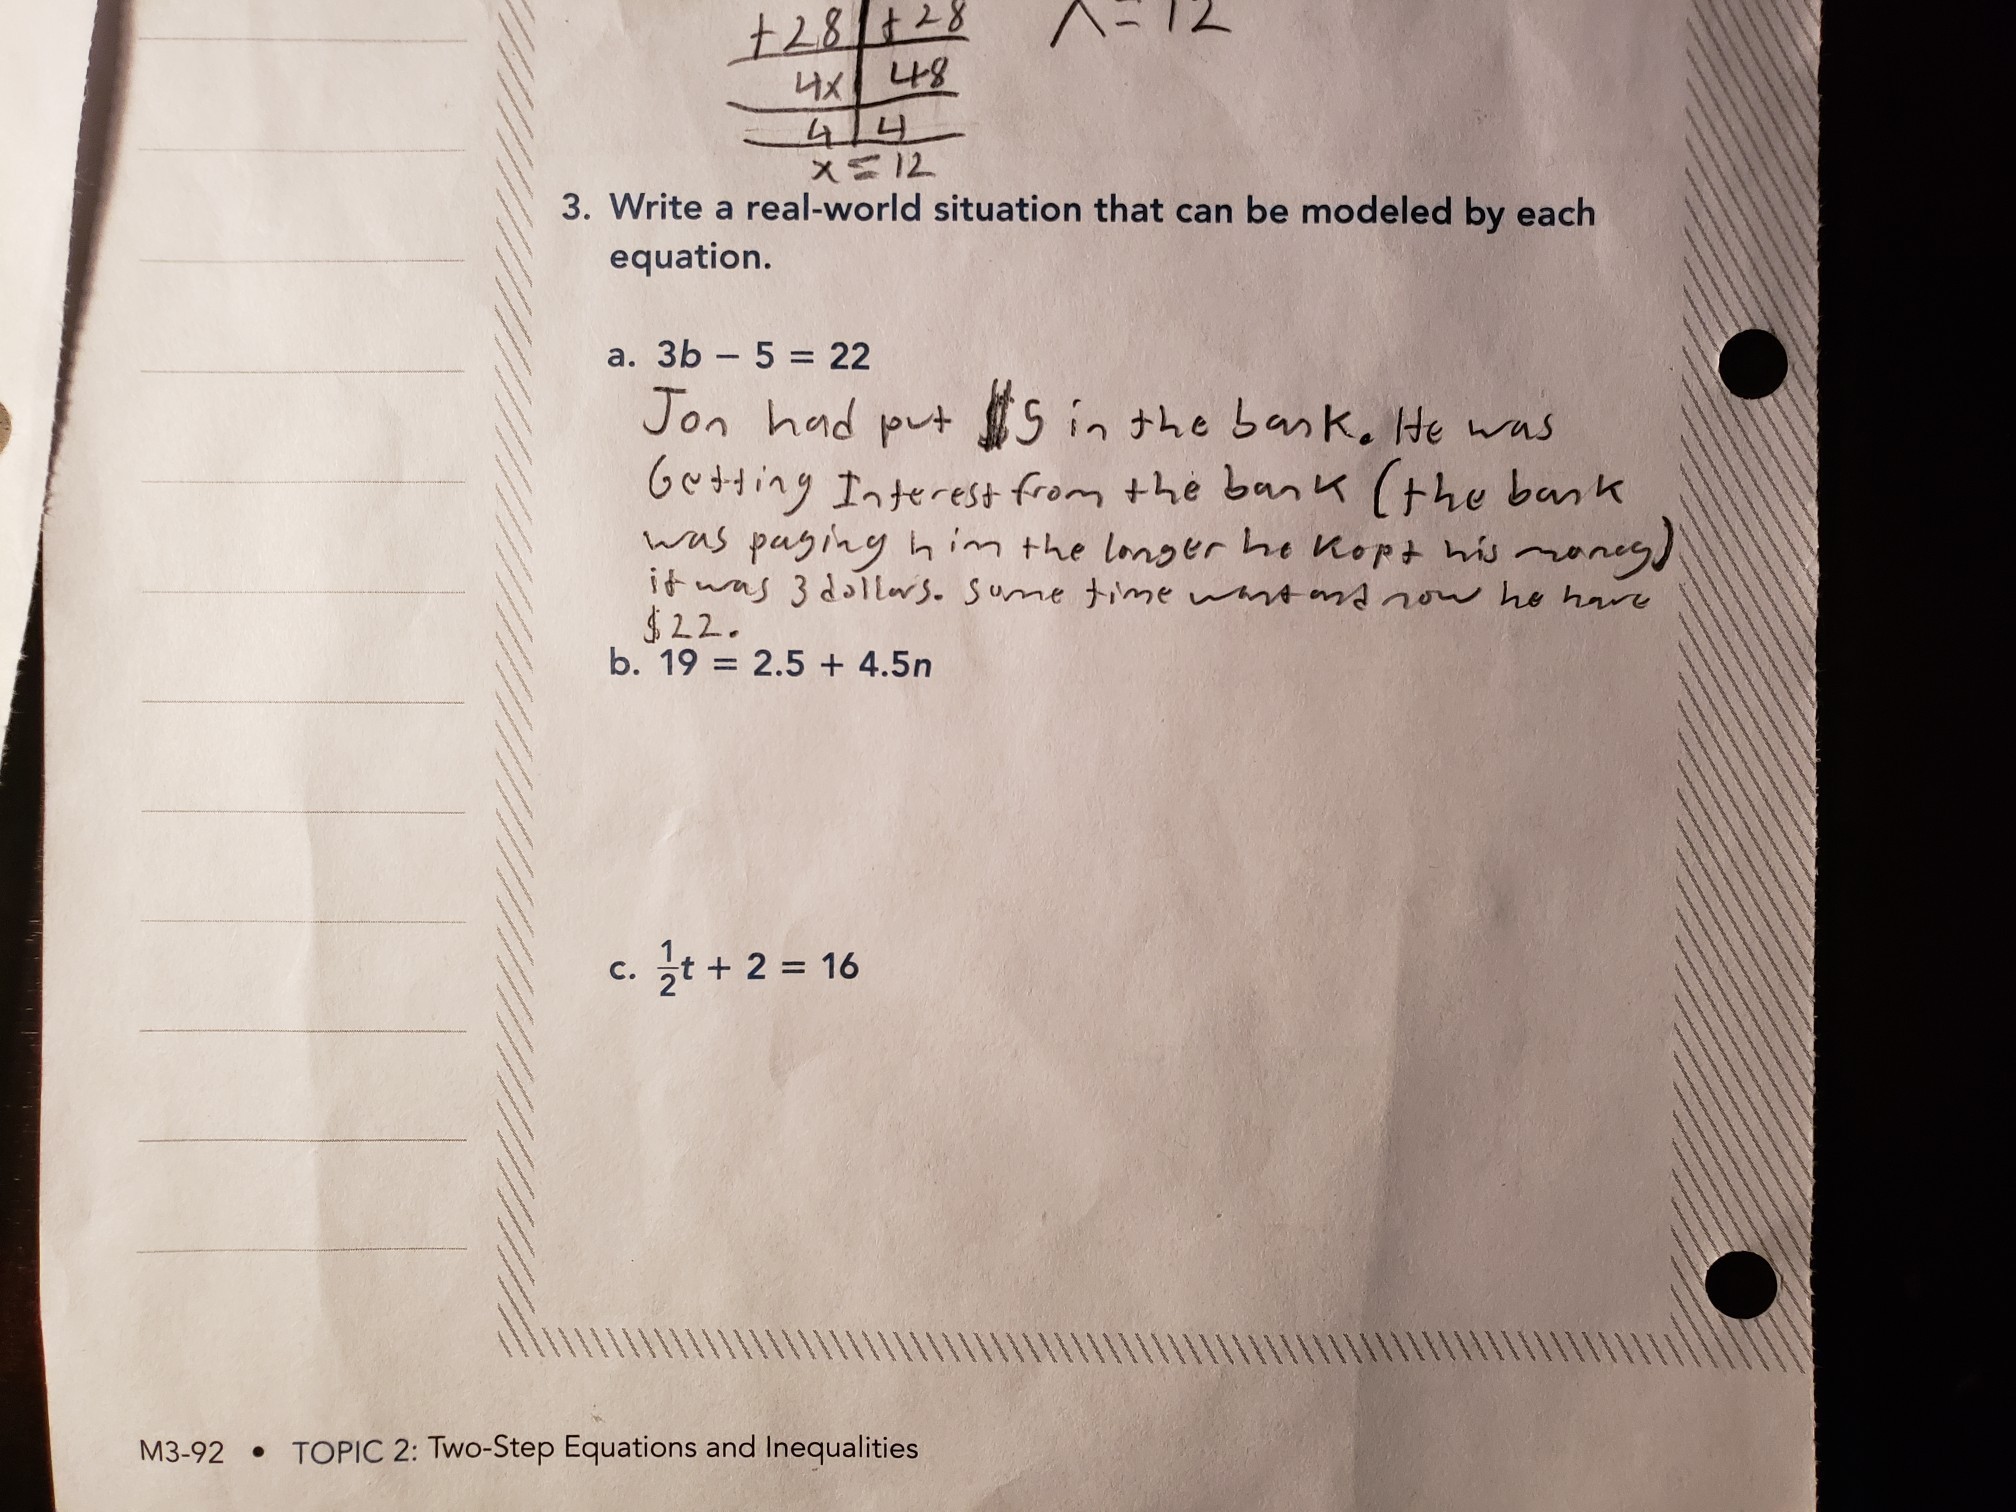 +28 | +28 x = 12
4x | 48
4 | 4
x = 12
3. Write a real-world situation that can be modeled by each
equation.
a. 3b − 5 = 22
Jon had put $5 in the bank. He was
Getting Interest from the bank (the bank
was paying him the longer he kept his money)
it was 3 dollars. Some time and now he have
$22.
b. 19 = 2.5 + 4.5n
c. 1/2t + 2 = 16
M3-92 • TOPIC 2: Two-Step Equations and Inequalities